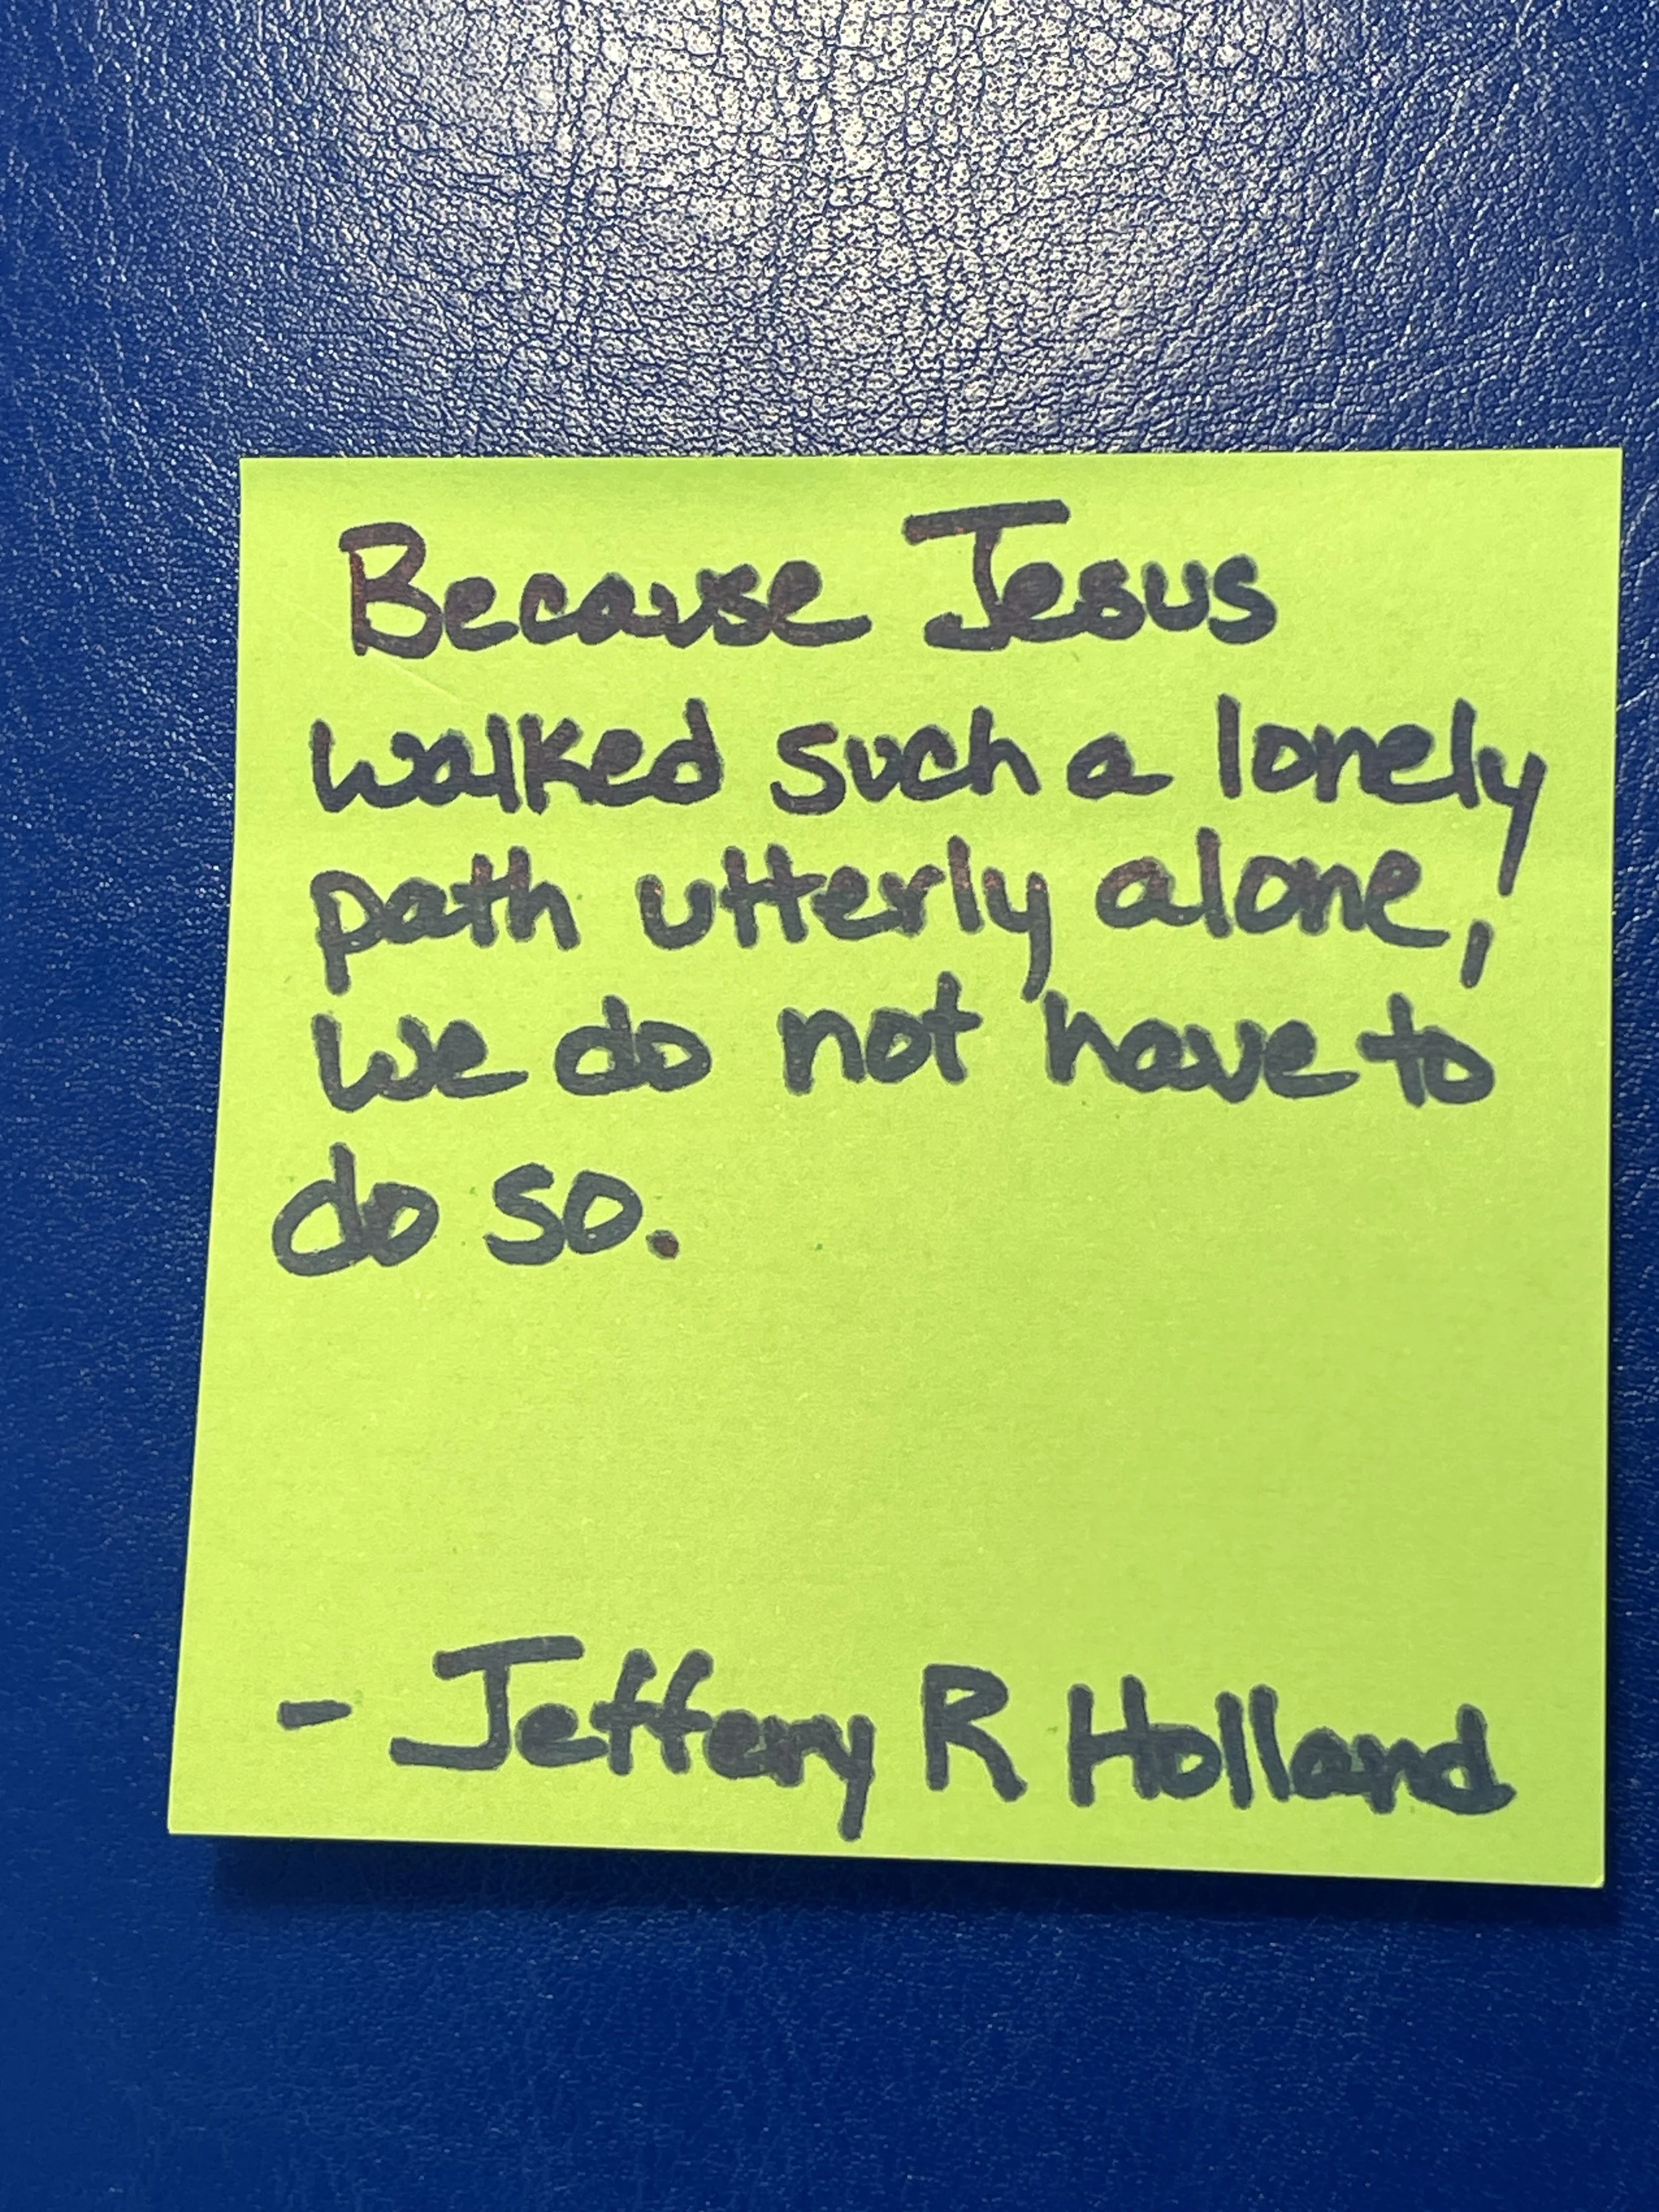 Because Jesus
walked such a lonely
path utterly alone,
we do not have to
do so.
- Jeffery R Holland